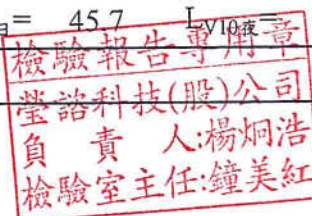 = 45.7 L_V10夜=
檢驗報告專用章
瑩諮科技(股)公司
負責人:楊炯浩
檢驗室主任:鐘美紅